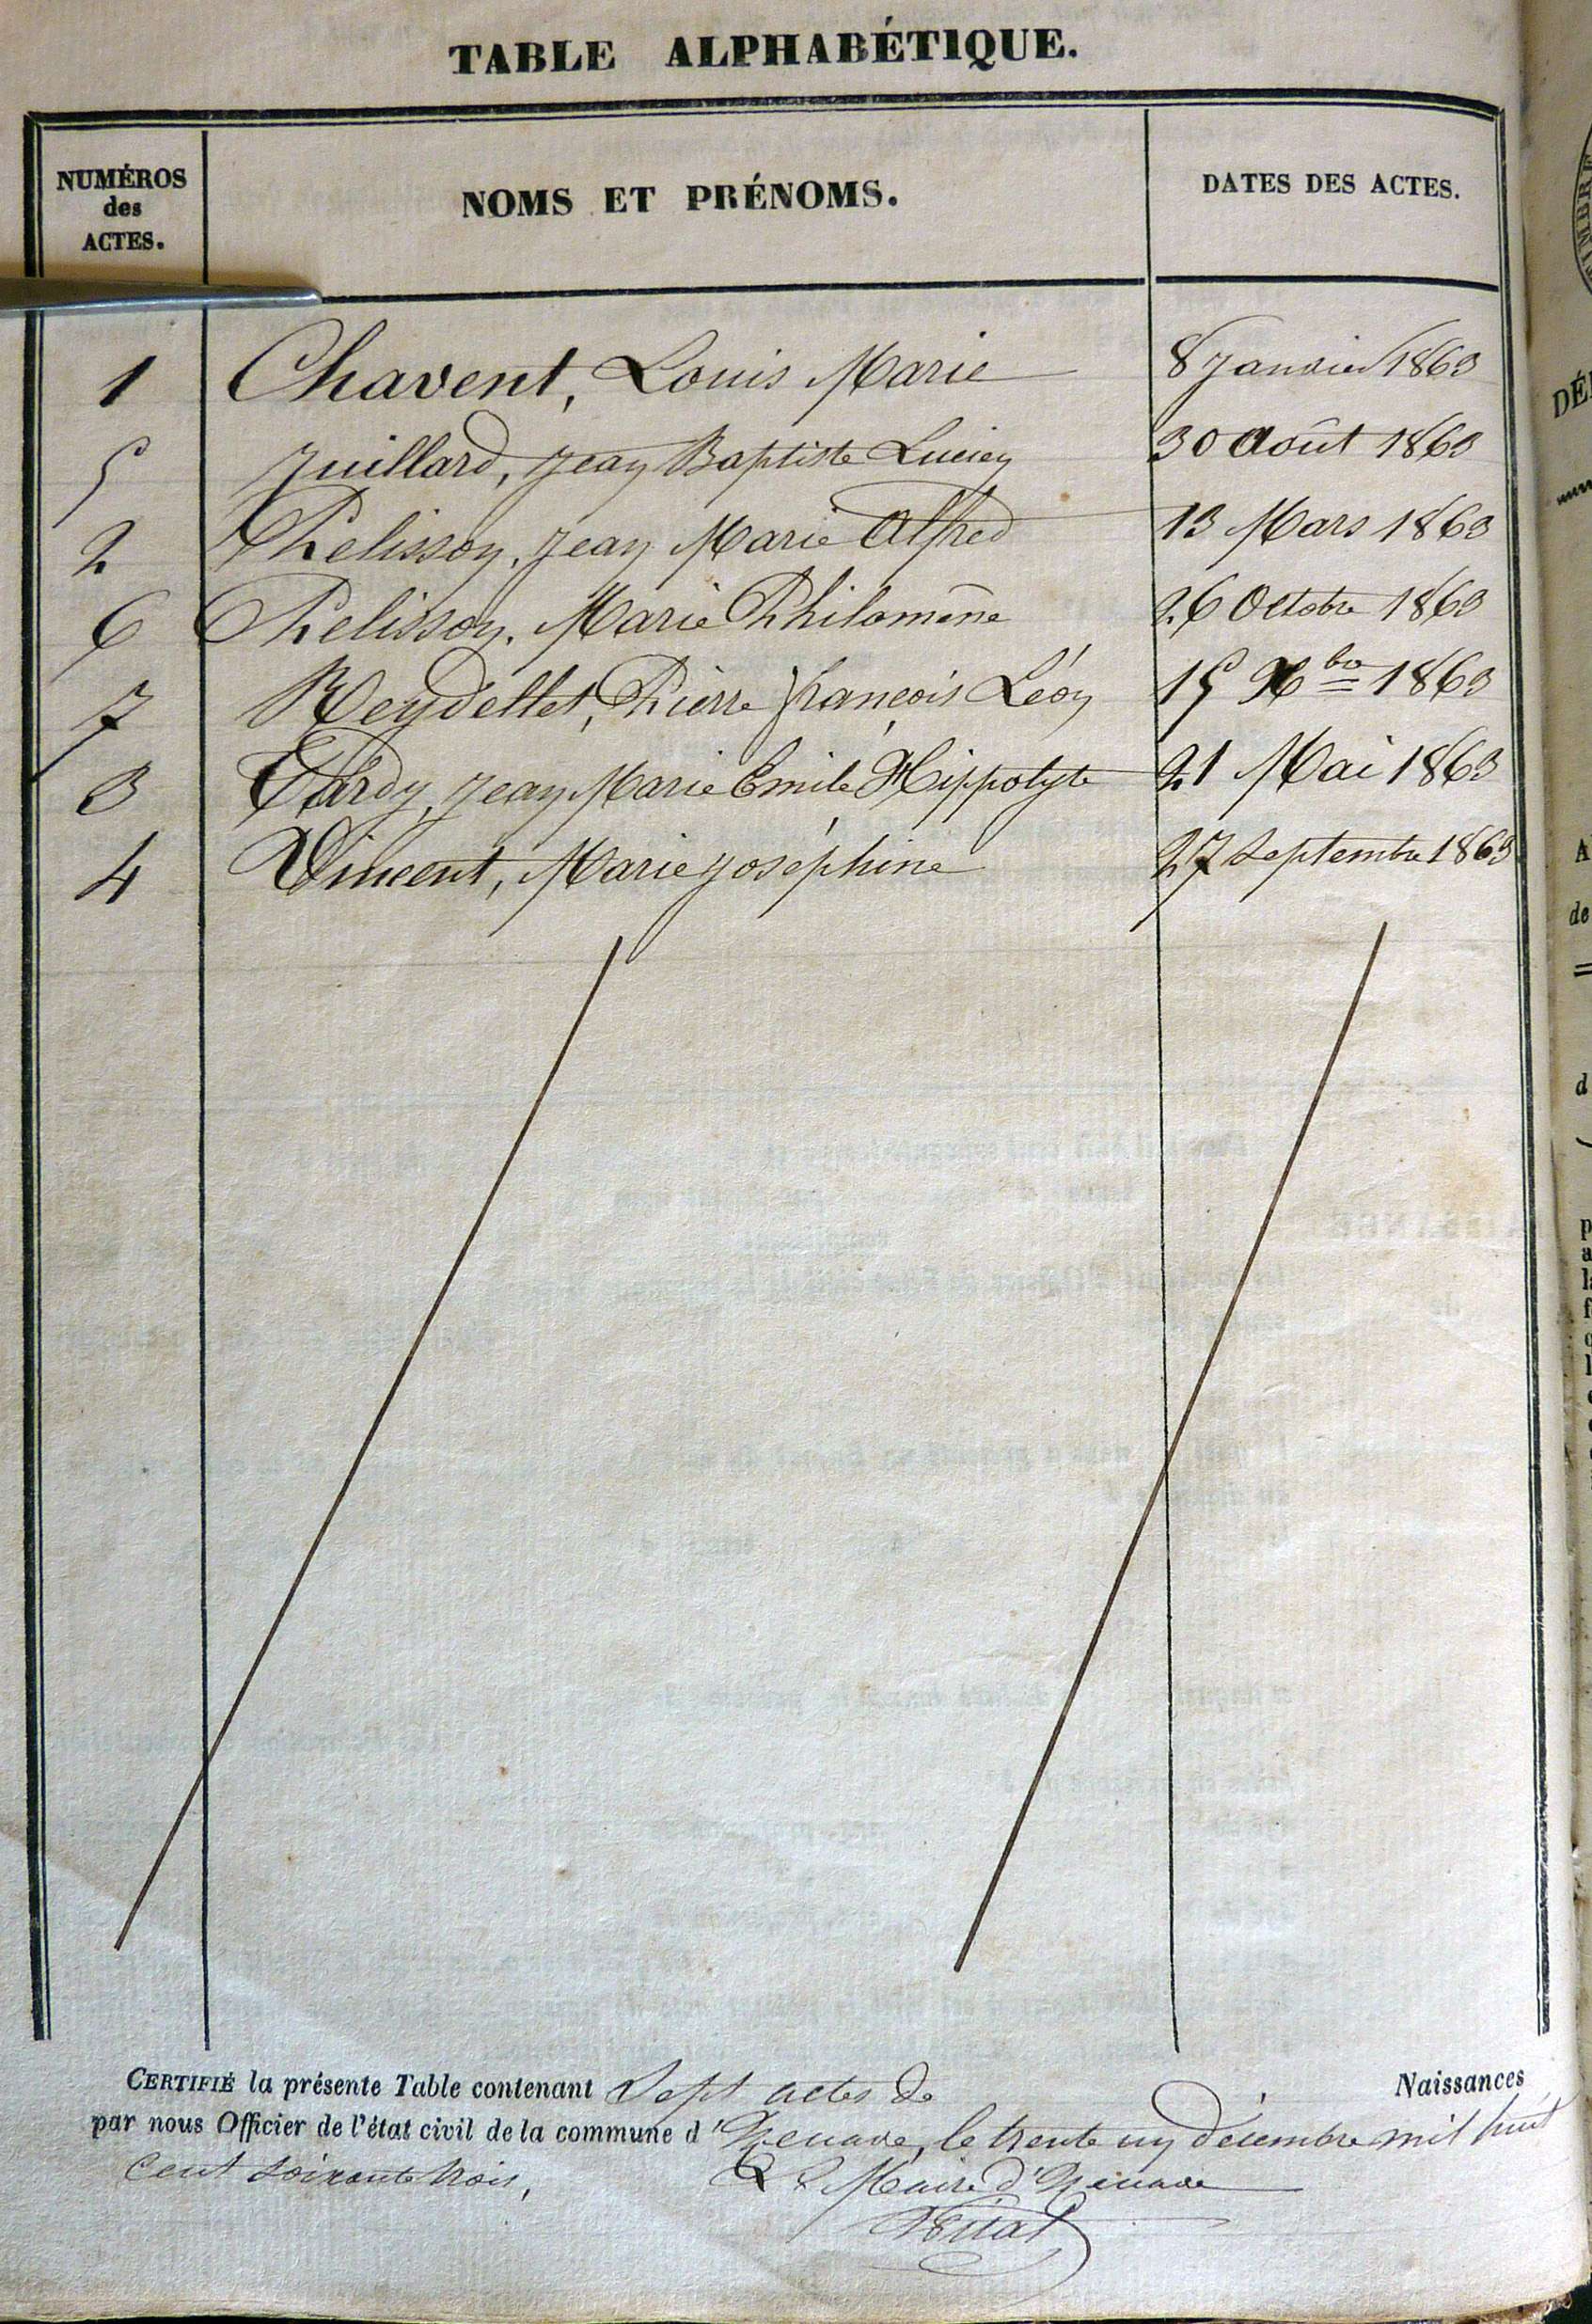 TABLE ALPHABÉTIQUE.
NUMÉROS
des
ACTES.
NOMS ET PRÉNOMS.
DATES DES ACTES.
1 Chavent, Louis Marie 8 Janvier 1863
5 Juillard, Jean Baptiste Lucien 30 Août 1863
2 Pelisson, Jean Marie Alfred 13 Mars 1863
6 Pelisson, Marie Philomène 26 Octobre 1863
7 Reydellet, Pierre François Léon 15 Xbre 1863
3 Tardy, Jean Marie Emile Hippolyte 21 Mai 1863
4 Vincent, Marie Joséphine 27 Septembre 1863
CERTIFIÉ la présente Table contenant Sept actes de Naissances
par nous Officier de l'état civil de la commune d' le trente un décembre mil huit
Cent soixante trois,
Le Maire d'